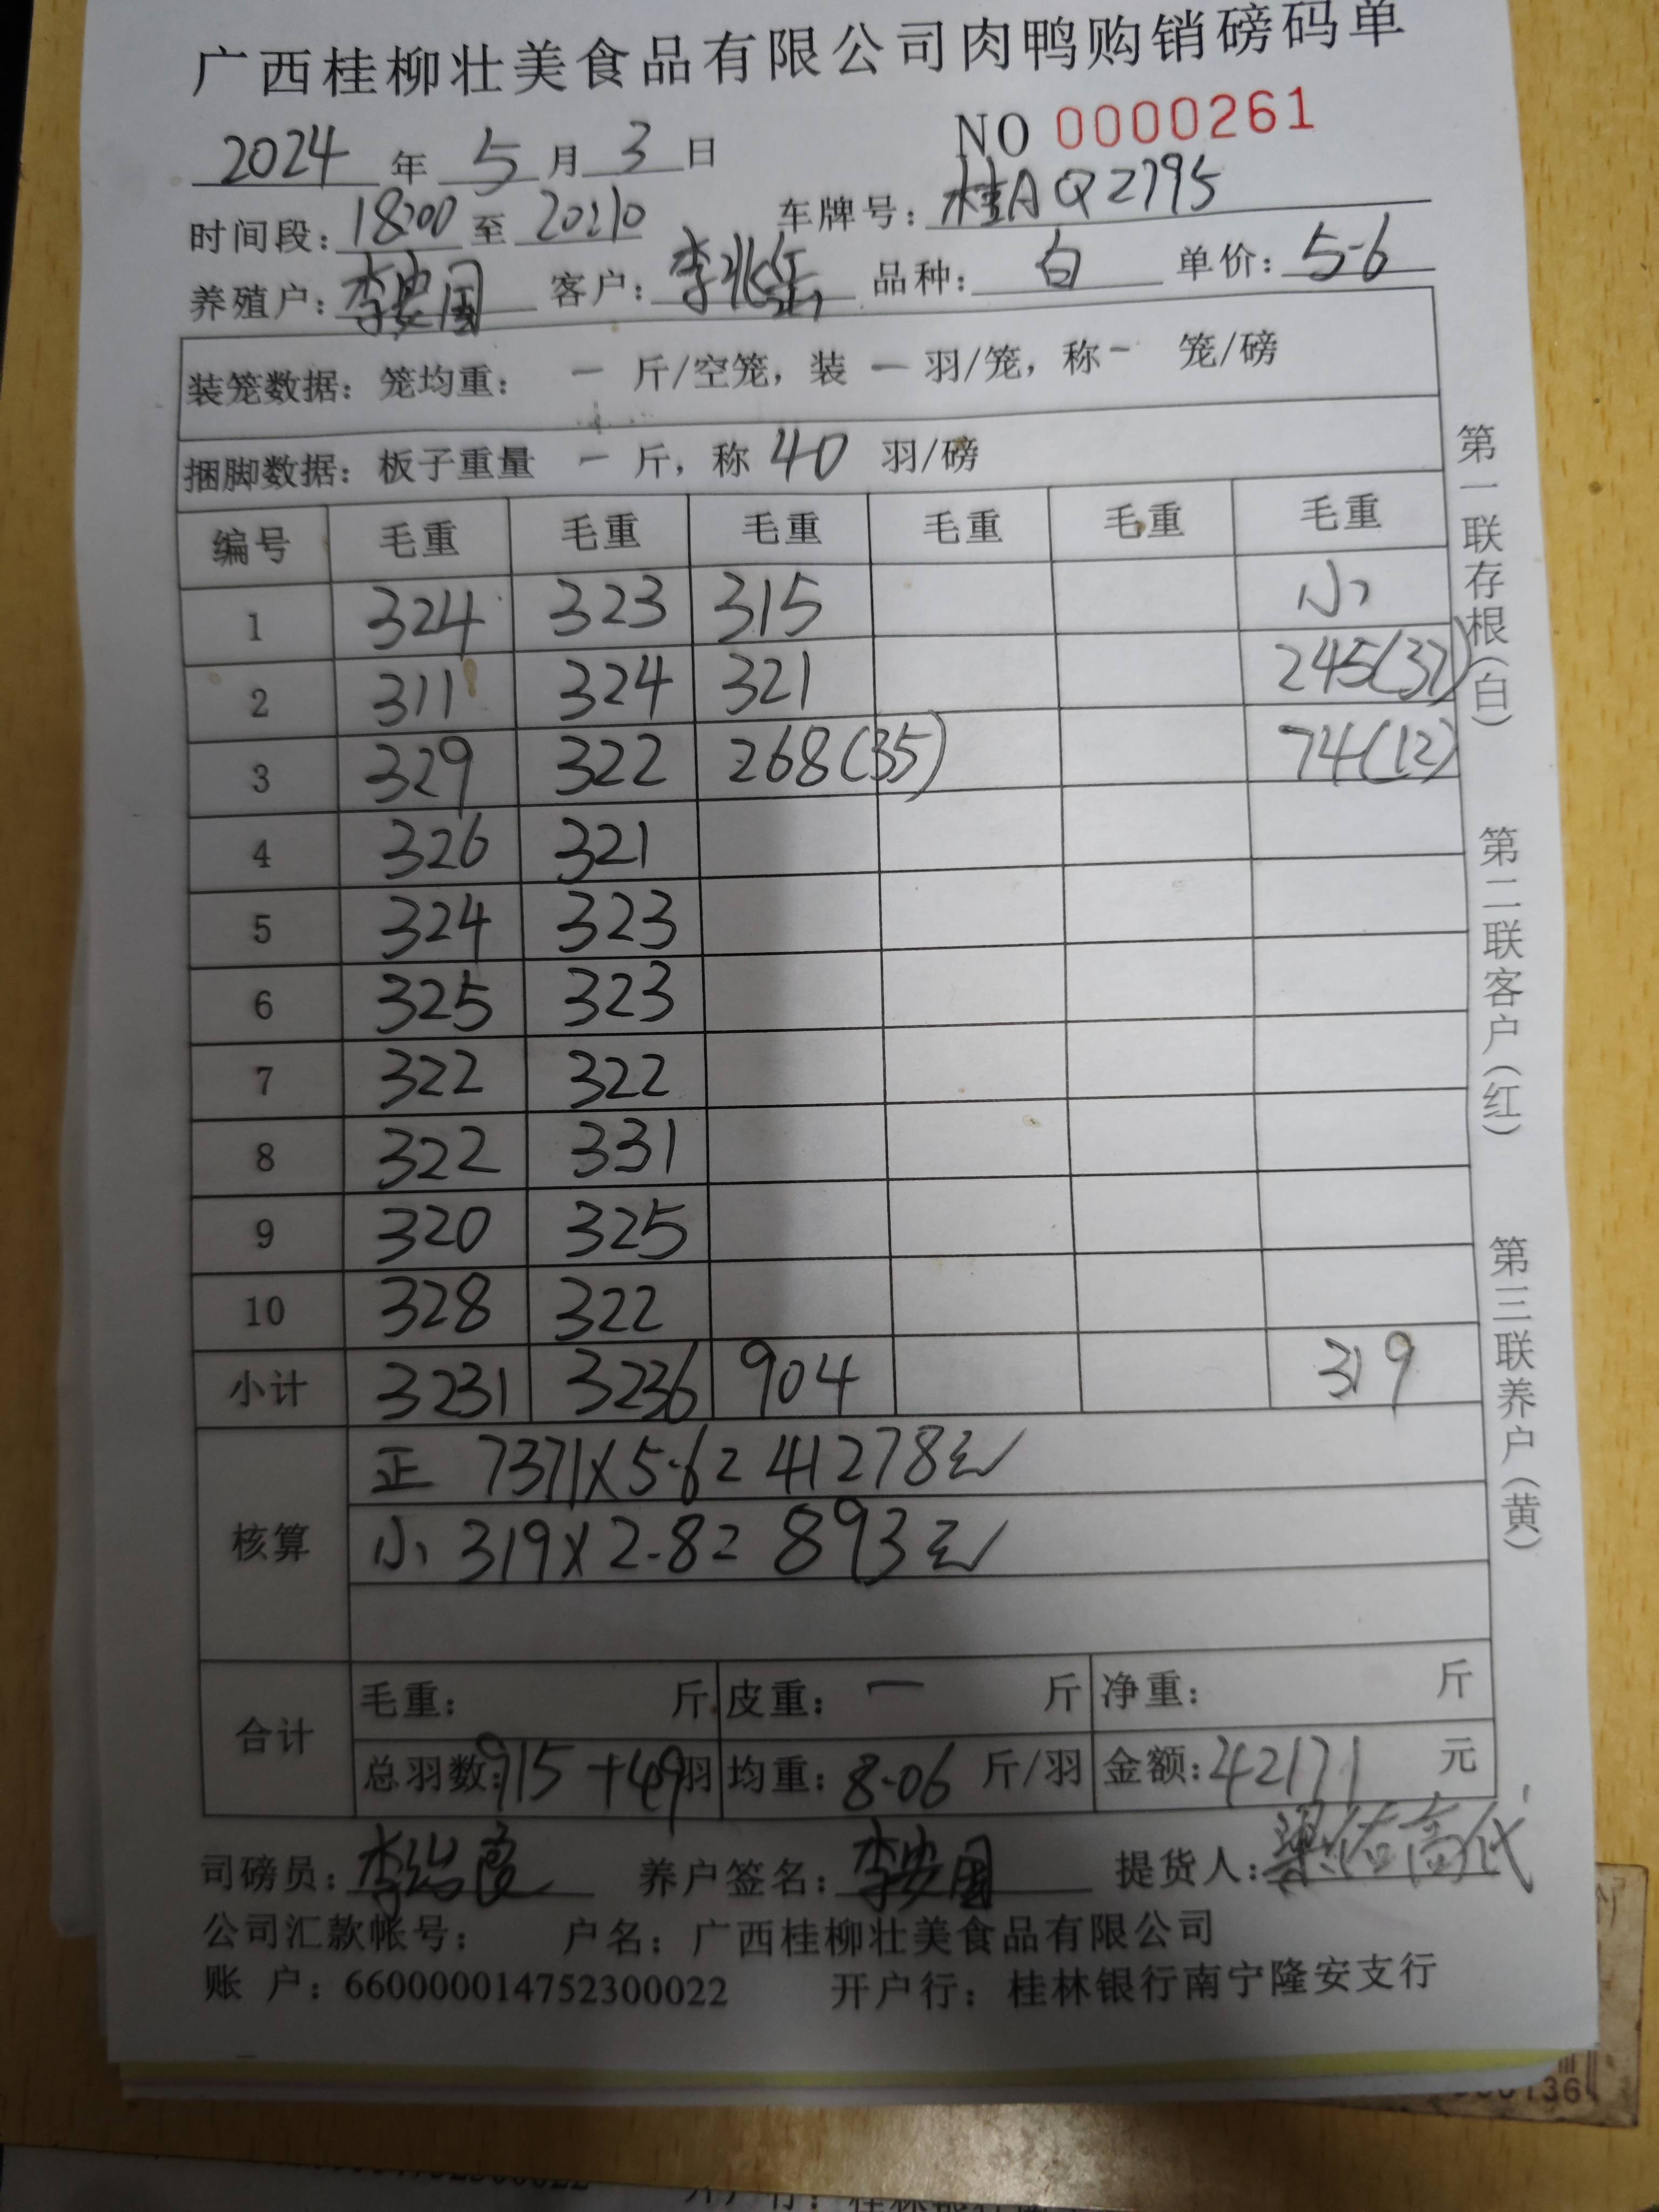 广西桂柳壮美食品有限公司肉鸭购销磅码单
NO 0000261
2024 年 5 月 3 日
时间段: 18:00 至 20:10 车牌号: 桂A Q2795
养殖户: 李安国 客户: 李兆 品种: 白 单价: 5-6
装笼数据: 笼均重: 一 斤/空笼, 装 一 羽/笼, 称 - 笼/磅
捆脚数据: 板子重量 一 斤, 称 40 羽/磅
编号 毛重 毛重 毛重 毛重 毛重 毛重
1 324 323 315 小
2 311 324 321 245(37)
3 329 322 268(35) 74(12)
4 326 321
5 324 323
6 325 323
7 322 322
8 322 331
9 320 325
10 328 322
小计 3231 3236 904 319
核算
正 7371×5.6= 41278元
小 319×2.8= 893元
合计
毛重: 斤 皮重: 一 斤 净重: 斤
总羽数: 915+49 羽 均重: 8.06 斤/羽 金额: 42171 元
司磅员: 李 养户签名: 李安国 提货人:
公司汇款帐号: 户名: 广西桂柳壮美食品有限公司
账 户: 660000014752300022 开户行: 桂林银行南宁隆安支行
第一联存根(白)
第二联客户(红)
第三联养户(黄)